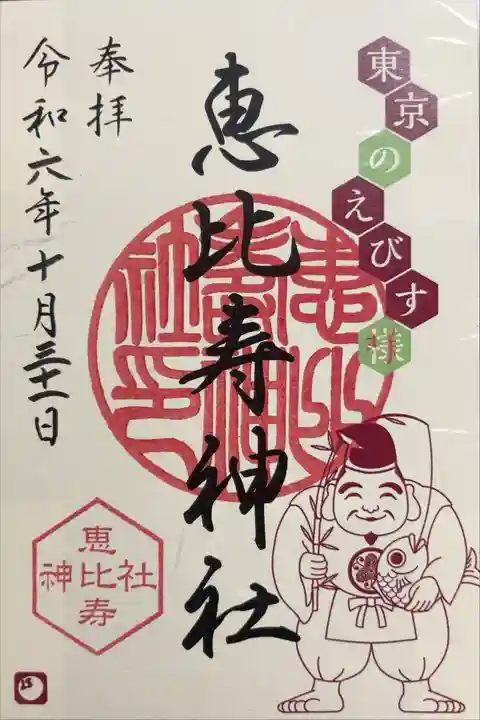 東京のえびす様
恵比寿神社
奉拝
令和六年十月三十一日
恵比寿
神社